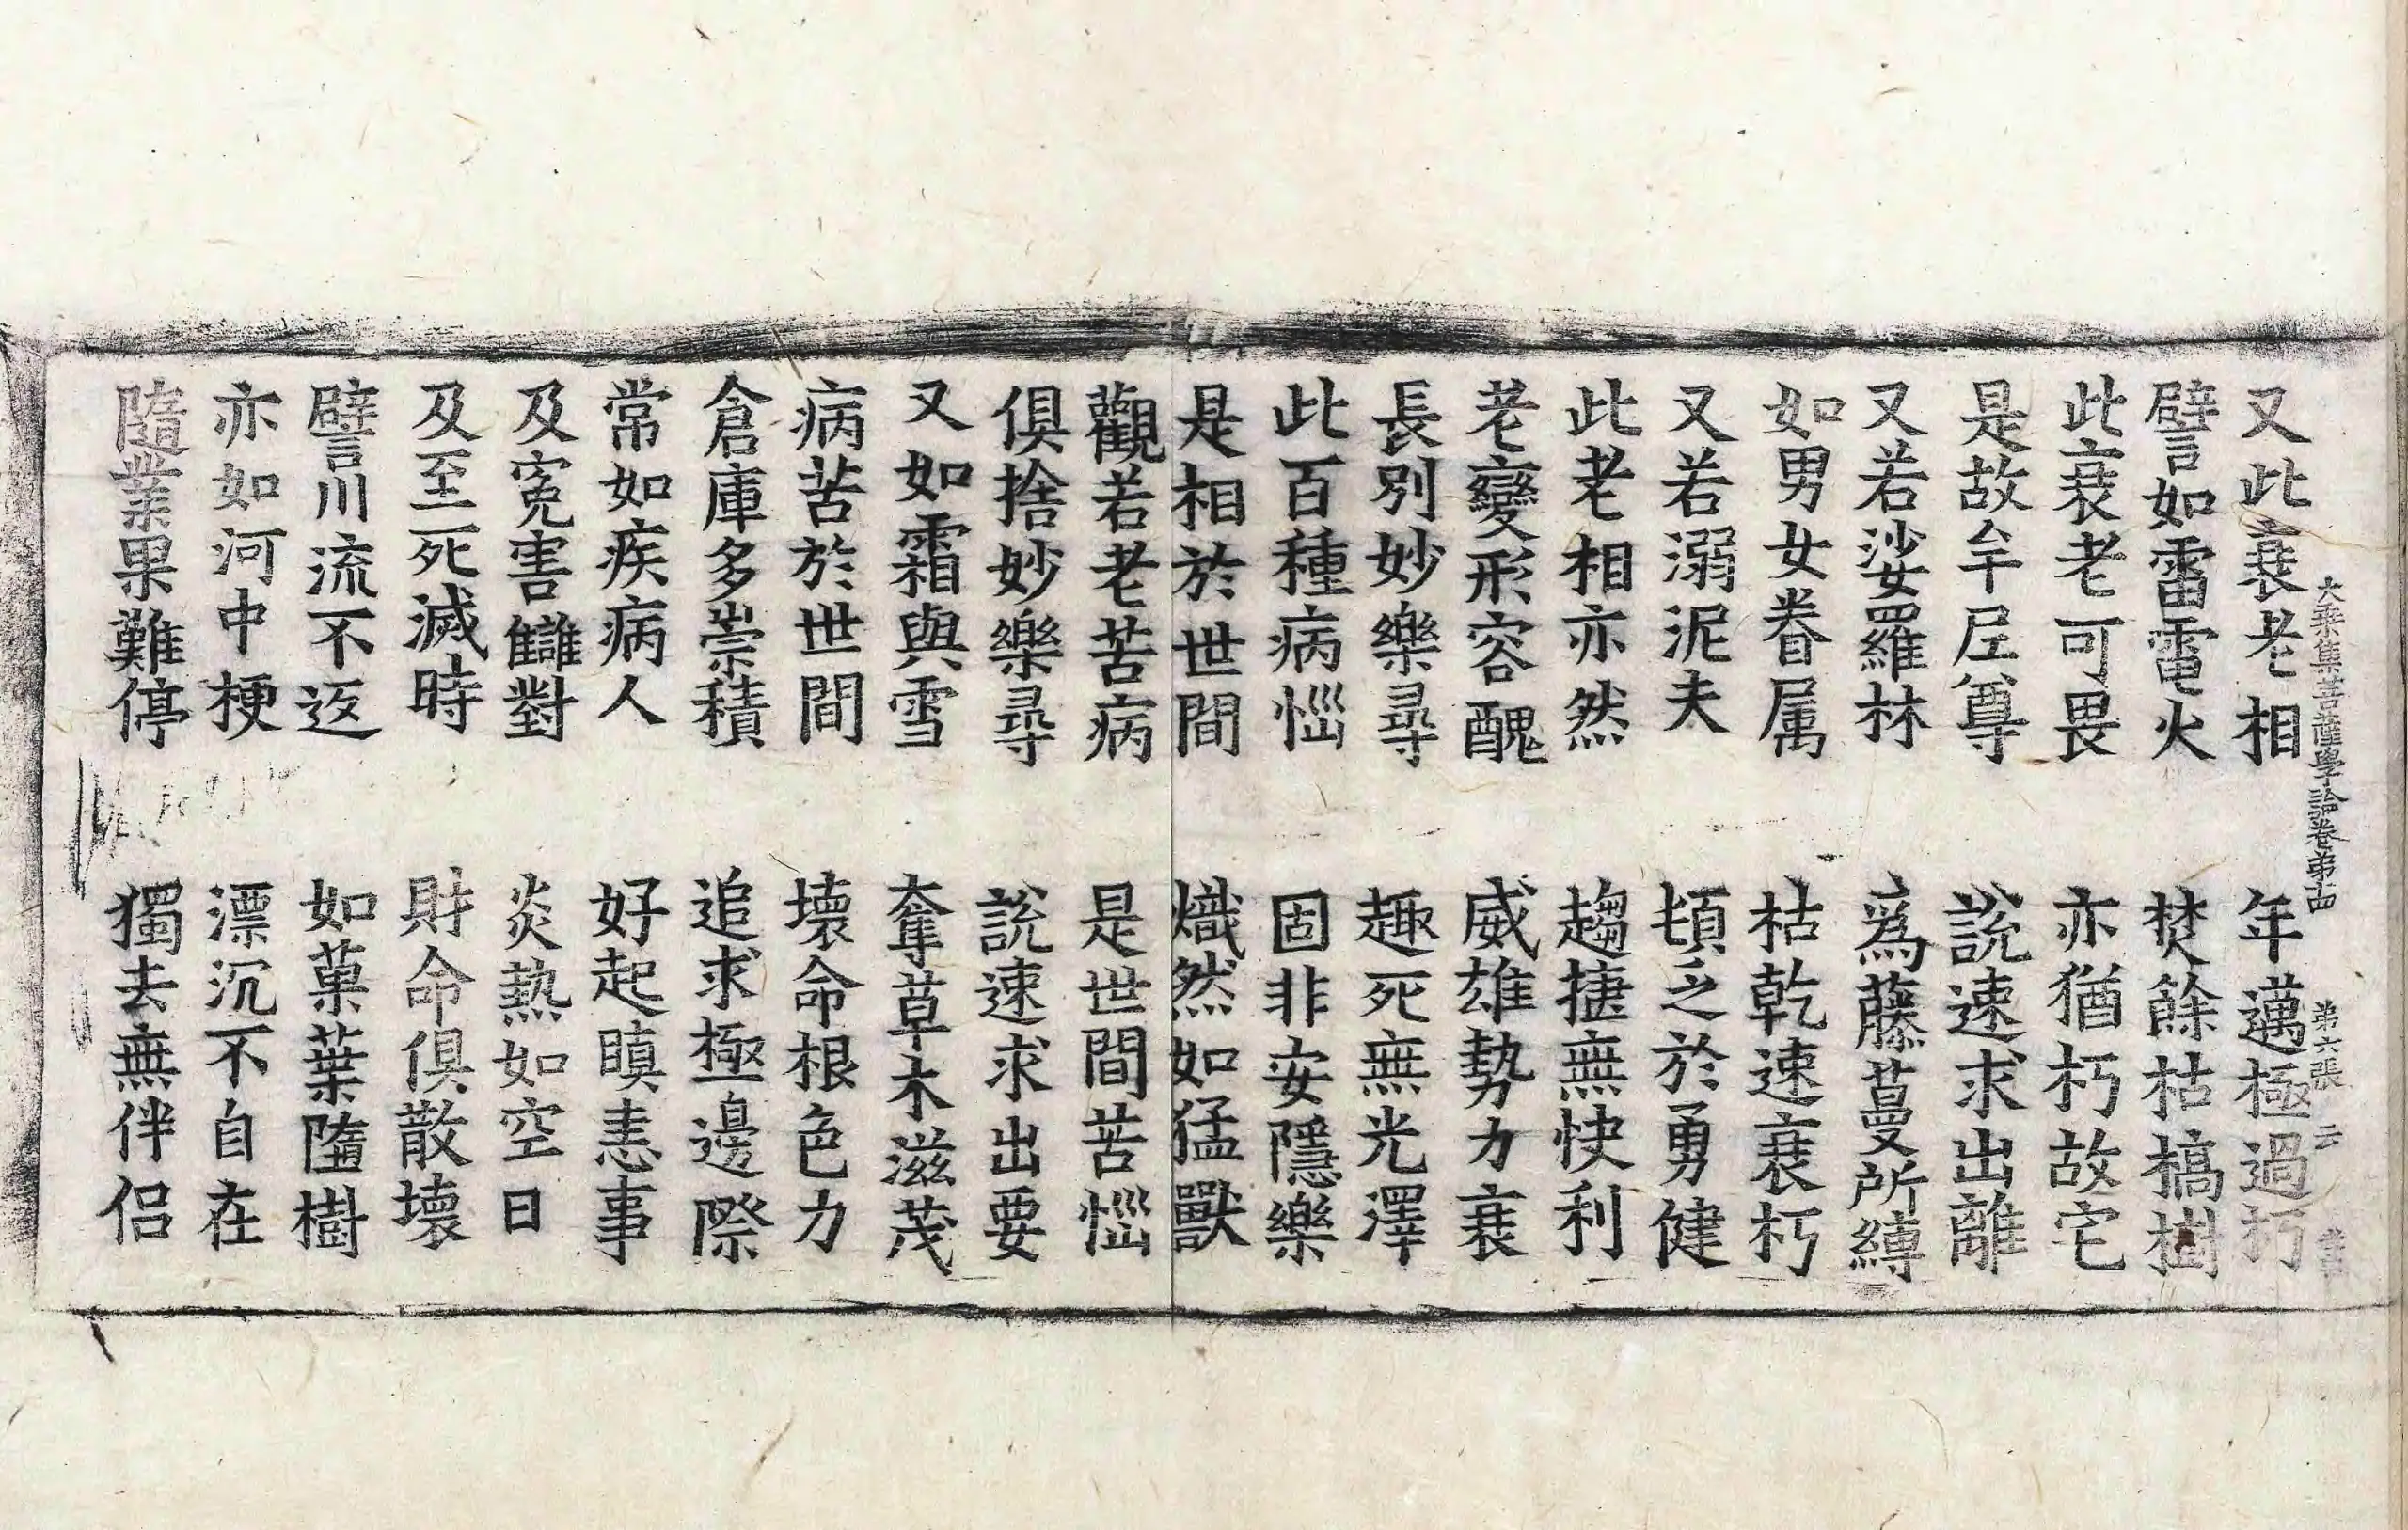 大乘集菩薩學論卷第十四　第六張　云
又此衰老相　年邁極過朽
譬如雷電火　焚餘枯槁樹
此衰老可畏　亦猶朽故宅
是故牟尼尊　說速求出離
又若娑羅林　爲藤蔓所縛
如男女眷属　枯乾速衰朽
又若溺泥夫　頓乏於勇健
此老相亦然　趫捷無快利
老變形容醜　威雄勢力衰
長別妙樂尋　趣死無光澤
此百種病惱　固非安隱樂
是相於世間　熾然如猛獸
觀若老苦病　是世間苦惱
俱捨妙樂尋　說速求出要
又如霜與雪　奪草木滋茂
病苦於世間　壞命根色力
倉庫多崇積　追求極邊際
常如疾病人　好起瞋恚事
及寃害讎對　炎熱如空日
及至死滅時　財命俱散壞
譬川流不返　如菓葉墮樹
亦如河中梗　漂沉不自在
隨業果難停　獨去無伴侣